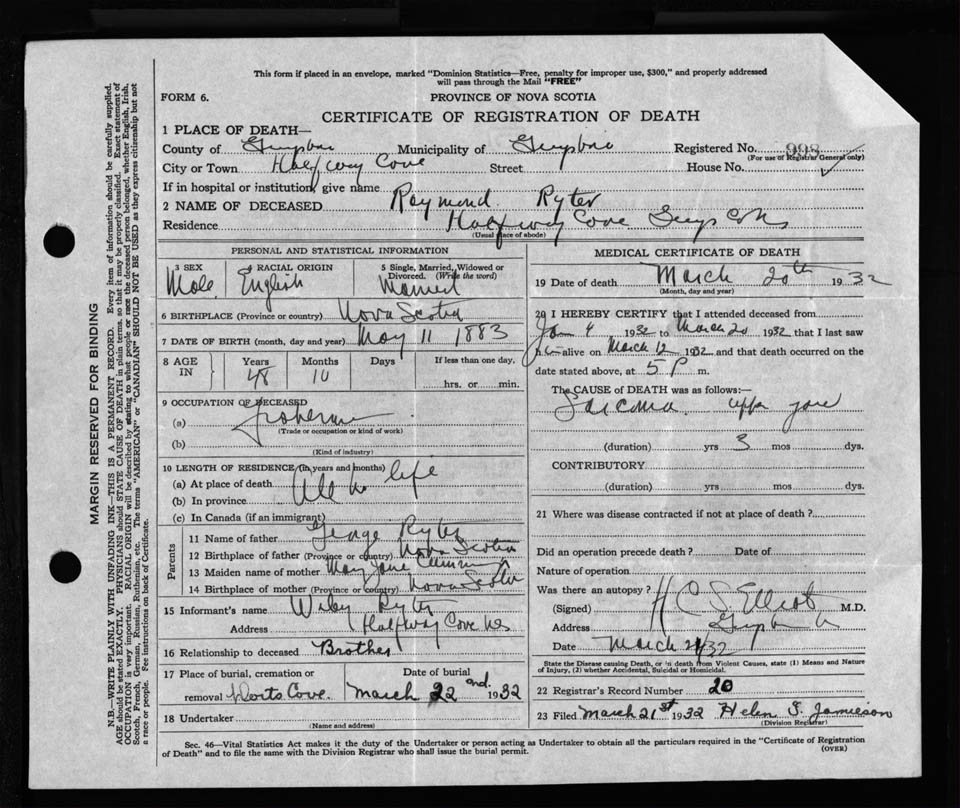 This form if placed in an envelope, marked "Dominion Statistics—Free, penalty for improper use, $300," and properly addressed
will pass through the Mail "FREE"
FORM 6.
PROVINCE OF NOVA SCOTIA
CERTIFICATE OF REGISTRATION OF DEATH
1 PLACE OF DEATH—
County of Guysboro Municipality of Guysboro Registered No. 998
(For use of Registrar General only)
City or Town Halfway Cove Street House No.
If in hospital or institution, give name
2 NAME OF DECEASED Raymond Ryter
Residence Halfway Cove Guys Co NS
(Usual place of abode)
PERSONAL AND STATISTICAL INFORMATION
3 SEX Male
4 RACIAL ORIGIN English
5 Single, Married, Widowed or Divorced. (Write the word) Married
6 BIRTHPLACE (Province or country) Nova Scotia
7 DATE OF BIRTH (month, day and year) May 11 1883
8 AGE IN Years 48 Months 10 Days If less than one day. hrs. or min.
9 OCCUPATION OF DECEASED
(a) fisherman
(Trade or occupation or kind of work)
(b)
(Kind of industry)
10 LENGTH OF RESIDENCE (in years and months)
(a) At place of death All his life
(b) In province
(c) In Canada (if an immigrant)
Parents
11 Name of father George Ryter
12 Birthplace of father (Province or country) Nova Scotia
13 Maiden name of mother Mary Jane
14 Birthplace of mother (Province or country) Nova Scotia
15 Informant's name Ryter
Address Halfway Cove NS
16 Relationship to deceased Brother
17 Place of burial, cremation or removal Cove.
Date of burial March 22nd. 1932
18 Undertaker
(Name and address)
MEDICAL CERTIFICATE OF DEATH
19 Date of death March 20th 1932
(Month, day and year)
20 I HEREBY CERTIFY that I attended deceased from
Jan 4 1932 to March 20 1932 that I last saw
him alive on March 12 1932 and that death occurred on the
date stated above, at 5 P m.
The CAUSE OF DEATH was as follows:—
Sarcoma upper jaw
(duration) yrs 3 mos dys.
CONTRIBUTORY
(duration) yrs mos dys.
21 Where was disease contracted if not at place of death?
Did an operation precede death? Date of
Nature of operation
Was there an autopsy?
(Signed) C S Elliot M.D.
Address Guysboro
Date March 21/32
State the Disease causing Death, or in death from Violent Causes, state (1) Means and Nature
of Injury, (2) whether Accidental, Suicidal or Homicidal.
22 Registrar's Record Number 20
23 Filed March 21st 1932 Helen S. Jamieson
(Division Registrar)
Sec. 46—Vital Statistics Act makes it the duty of the Undertaker or person acting as Undertaker to obtain all the particulars required in the "Certificate of Registration
of Death" and to file the same with the Division Registrar who shall issue the burial permit.
(OVER)
MARGIN RESERVED FOR BINDING
N.B.—WRITE PLAINLY WITH UNFADING INK—THIS IS A PERMANENT RECORD. Every item of information should be carefully supplied.
AGE should be stated EXACTLY. PHYSICIANS should STATE CAUSE OF DEATH in plain terms, so that it may be properly classified. Exact statement of
OCCUPATION is very important. RACIAL ORIGIN will be described by stating to what people or race the deceased person belonged, whether English, Irish,
Scotch, French, German, Russian, Ruthenian, etc. The terms "AMERICAN" or "CANADIAN" SHOULD NOT BE USED as they express citizenship but not
a race or people. Fee instructions on back of Certificate.